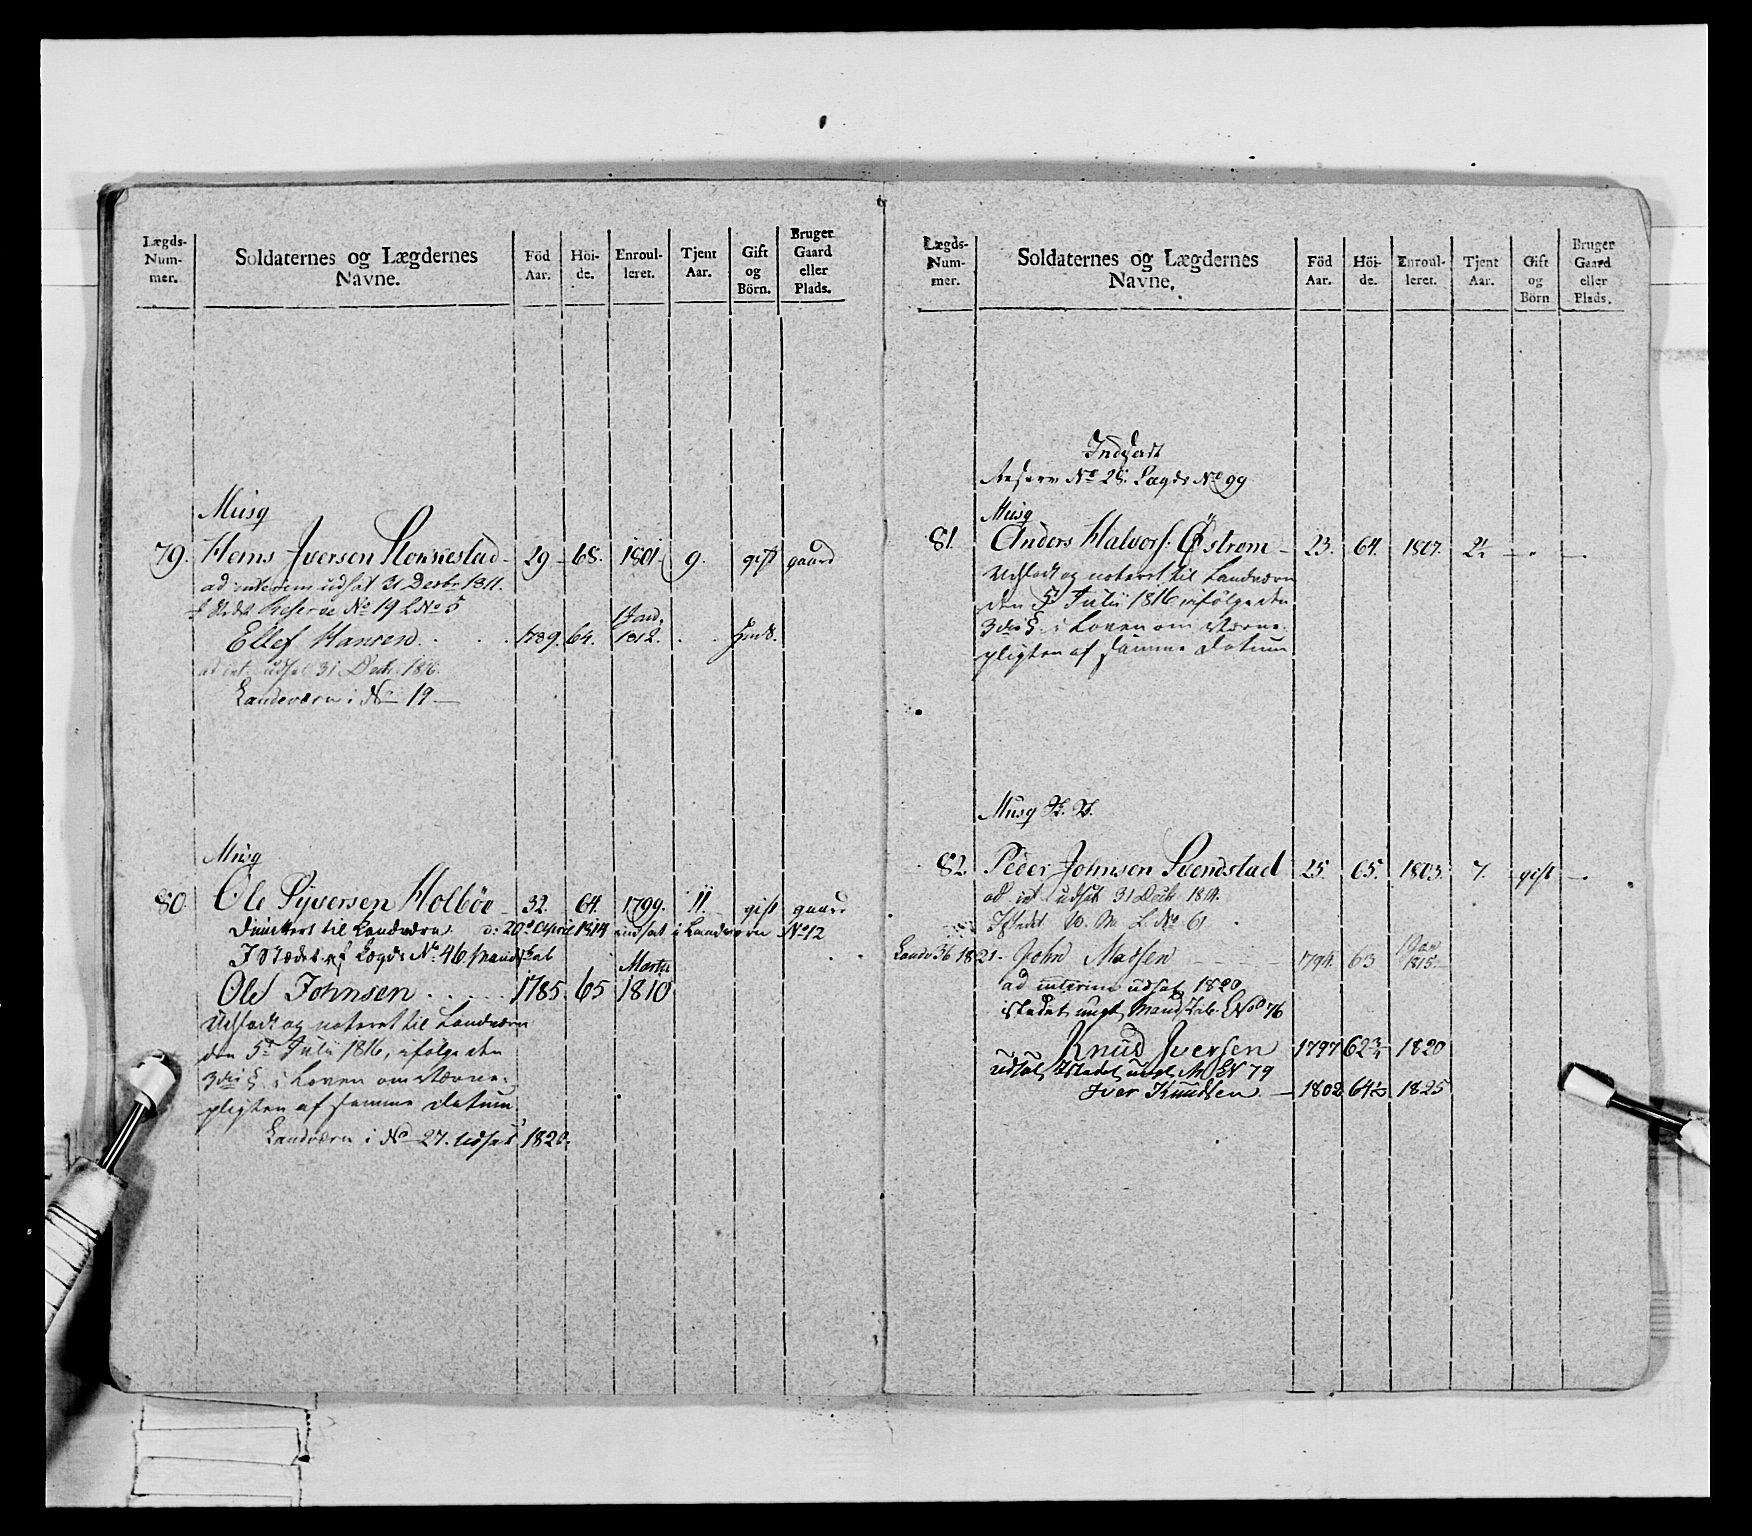 Lægds-
Num-
mer.
Soldaternes og Lægdernes
Navne.
Föd
Aar.
Höi-
de.
Enroul-
leret.
Tjent
Aar.
Gift
og
Börn.
Bruger
Gaard
eller
Plads.
Musq
79. Hans Iversen Stonnestad 29 68. 1801. 9. gift gaard
ad interim udsat 31 Decbr 1811.
Reserve No 19 L No 5
1 Jan.
Ellef Hansen 1789. 64. 1812.
ad int. udsat 31 Decbr. 1816.
Landeværn i No 19
Musq
80 Ole Syversen Holböe 32. 64. 1799. 11. gift gaard
til Landværn d: 20de April 1814 indsat i Landværn No 12
I Stædet af Lægds No 46 Mandskab
Martii
Ole Johnsen 1785. 65 1810
Udskudt og noteret til Landværn
den 5te Julii 1816, ifölge den
3die § i Loven om Værne-
pligten af samme Datum
Landværn i No 27. udsat 1820.
Lægds-
Num-
mer.
Soldaternes og Lægdernes
Navne.
Föd
Aar.
Höi-
de.
Enroul-
leret.
Tjent
Aar.
Gift
og
Börn
Bruger
Gaard
eller
Plads.
Indsadt
Reserv No 28. Lægds No 99
Musq
81. Anders Halvors: Östrom 23. 64. 1807. 2½
Udskudt og noteret til Landværn
den 5te Julii 1816, ifölge den
3die §. i Loven om Værne-
pligten af samme Datum
Musq
82. Peder Johnsen Svendstad 25 65. 1803. 7. gift
ad int udsat 31 Decbr 1814.
Istedet L No 61
1 Jan
Landv 36 1821. John Madsen 1794. 63 1815
ad interim udsat 1820
istedet ungt Mandskab L No 76
Knud Iversen 1797 62¾ 1820
udsat, Istedet ungt M L N 79
Iver Knudsen 1802 64½ 1825